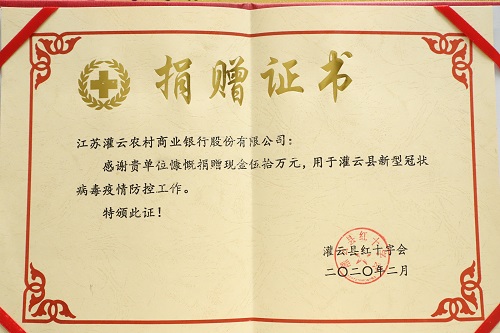 捐赠证书
江苏灌云农村商业银行股份有限公司：
感谢贵单位慷慨捐赠现金伍拾万元，用于灌云县新型冠状
病毒疫情防控工作。
特颁此证！
灌云县红十字会
二〇二〇年二月